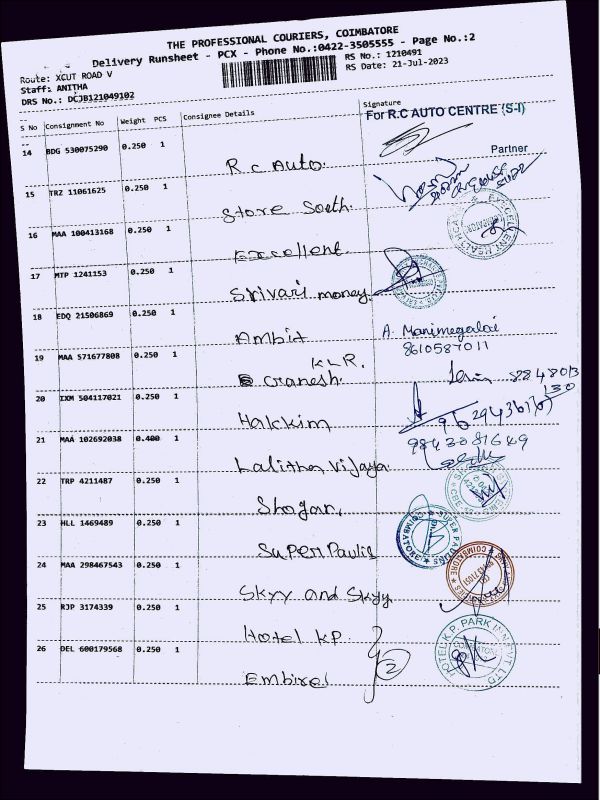 THE PROFESSIONAL COURIERS, COIMBATORE
Delivery Runsheet - PCX - Phone No.:0422-3505555 - Page No.:2
Route: XCUT ROAD V
RS No.: 1210491
Staff: ANITHA
RS Date: 21-Jul-2023
DRS No.: DCJB121049102
S No Consignment No Weight PCS Consignee Details Signature
For R.C AUTO CENTRE (S-I)
14 BDG 530075290 0.250 1 R.C Auto.
Partner
15 TRZ 11061625 0.250 1 Store South.
16 MAA 100413168 0.250 1 Excellent
17 MTP 1241153 0.250 1 Srivari money.
18 EDQ 21506869 0.250 1 Ambit A. Manimegalai
8610587011
19 MAA 571677808 0.250 1 KLR.
Ganesh.
20 IXM 504117021 0.250 1 Hakkim
21 MAA 102692038 0.400 1 Lalitha Vijaya 9843081649
22 TRP 4211487 0.250 1
23 HLL 1469489 0.250 1 Super Paulis
24 MAA 298467543 0.250 1 Skyy and Skyy
25 RJP 3174339 0.250 1 Hotel KP
2
26 DEL 600179568 0.250 1